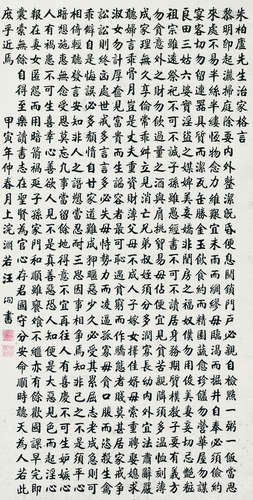 朱柏廬先生治家格言
黎明即起灑掃庭除要內外整潔既昏便息關鎖門戶必親自檢點一粥一飯當思
來處不易半絲半縷恆念物力維艱宜未雨而綢繆毋臨渴而掘井自奉必須儉約
宴客切勿留連器具質而潔瓦缶勝金玉飲食約而精園蔬愈珍饈勿營華屋勿謀
良田三姑六婆實淫盜之媒婢美妾嬌非閨房之福奴僕勿用俊美妻妾切忌艷妝
祖宗雖遠祭祀不可不誠子孫雖愚經書不可不讀居身務期質樸教子要有義方
勿貪意外之財勿飲過量之酒與肩挑貿易毋佔便宜見貧苦親鄰須多溫恤刻薄
成家理無久享倫常乖舛立見消亡兄弟叔姪須分多潤寡長幼內外宜法肅辭嚴
聽婦言乖骨肉豈是丈夫重資財薄父母不成人子嫁女擇佳婿毋索重聘娶媳求
淑女勿計厚奩見富貴而生諂容者最可恥遇貧窮而作驕態者賤莫甚居家戒爭
訟訟則終凶處世戒多言言多必失毋恃勢力而凌逼孤寡毋貪口腹而恣殺生禽
乖僻自是悔誤必多頹惰自甘家道難成狎暱惡少久必受其累屈志老成急則可
相倚輕聽發言安知非人之譖訴當忍耐三思因事相爭焉知非我之不是須平心
暗想施惠無念受恩莫忘凡事當留餘地得意不宜再往人有喜慶不可生妒嫉心
人有禍患不可生喜幸心善欲人見不是真善惡恐人知便是大惡見色而起淫心
報在妻女匿怨而用暗箭禍延子孫家門和順雖饔飧不繼亦有餘歡國課早完即
囊橐無餘自得至樂讀書志在聖賢為官心存君國守分安命順時聽天為人若此
庶乎近焉
甲寅年仲春月上浣淵若汪洵書